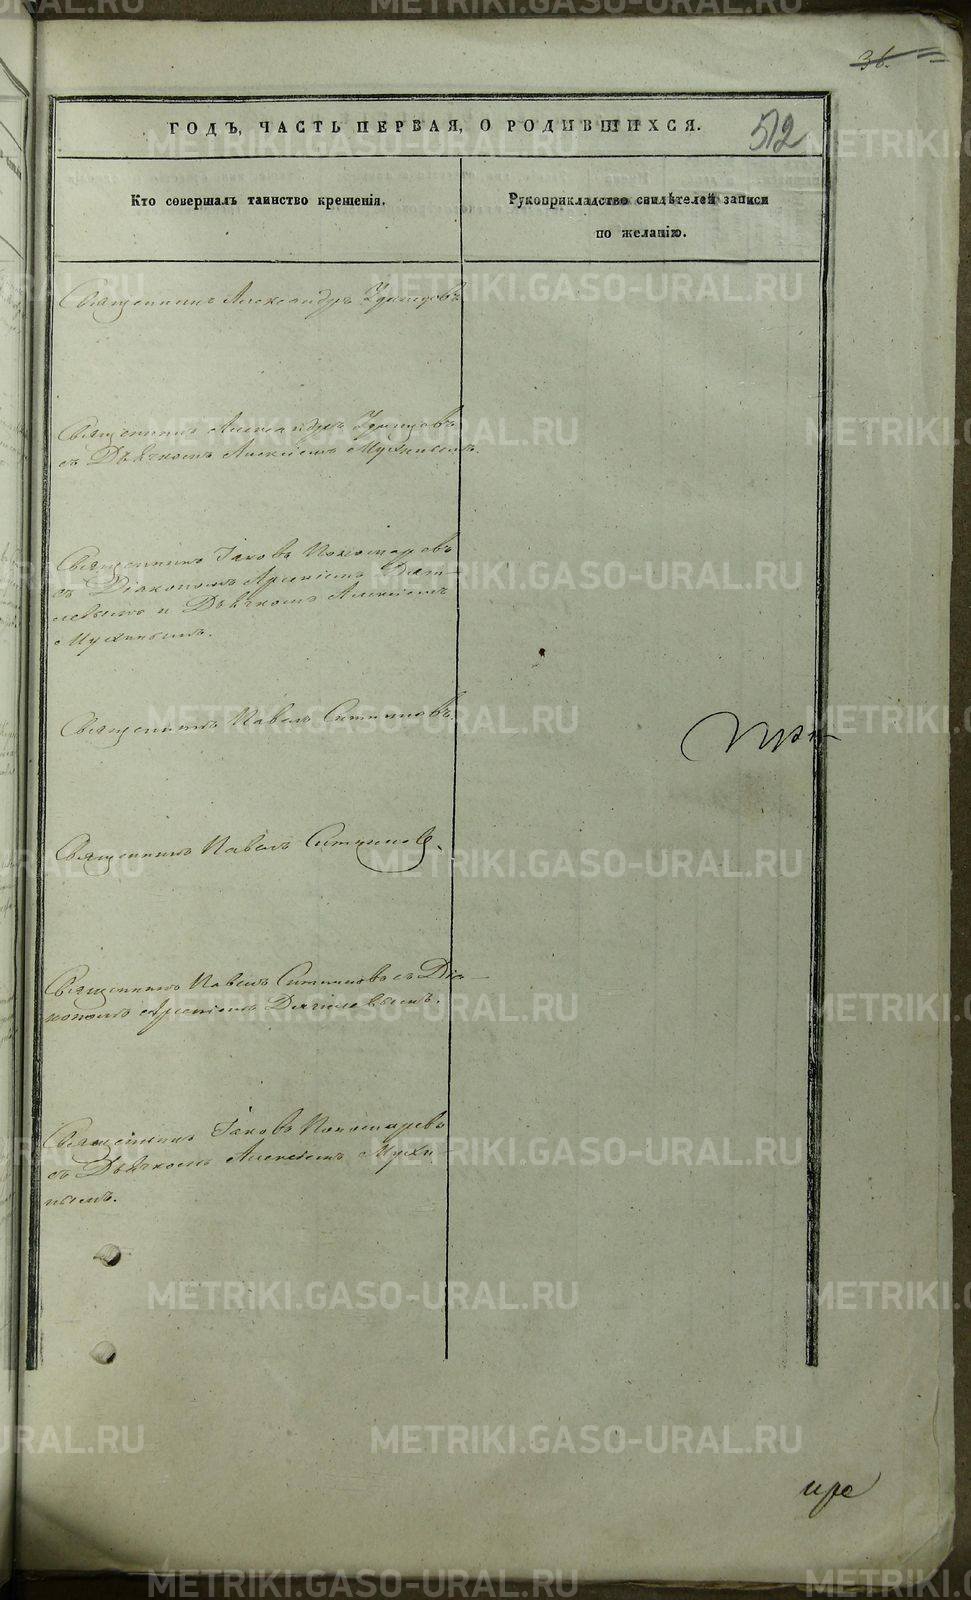 36.
ГОДЪ, ЧАСТЬ ПЕРВАЯ, О РОДИВШИХСЯ.
512
Кто совершалъ таинство крещенія.
Рукоприкладство свидѣтелей записи
по желанію.
Священникъ Александръ Удинцовъ
Священникъ Александръ Удинцовъ
съ Дьячкомъ Алексіемъ Мухинымъ.
Священникъ Іаковъ Пономаревъ
съ Діакономъ Арсеніемъ Дяги-
левымъ и Дьячкомъ Алексіемъ
Мухинымъ.
Священникъ Павелъ Ситниковъ.
Священникъ Павелъ Ситниковъ.
Священникъ Павелъ Ситниковъ съ Діа-
кономъ Арсеніемъ Дягилевымъ.
Священникъ Іаковъ Пономаревъ
съ Дьячкомъ Алексіемъ Мухи-
нымъ.
METRIKI.GASO-URAL.RU